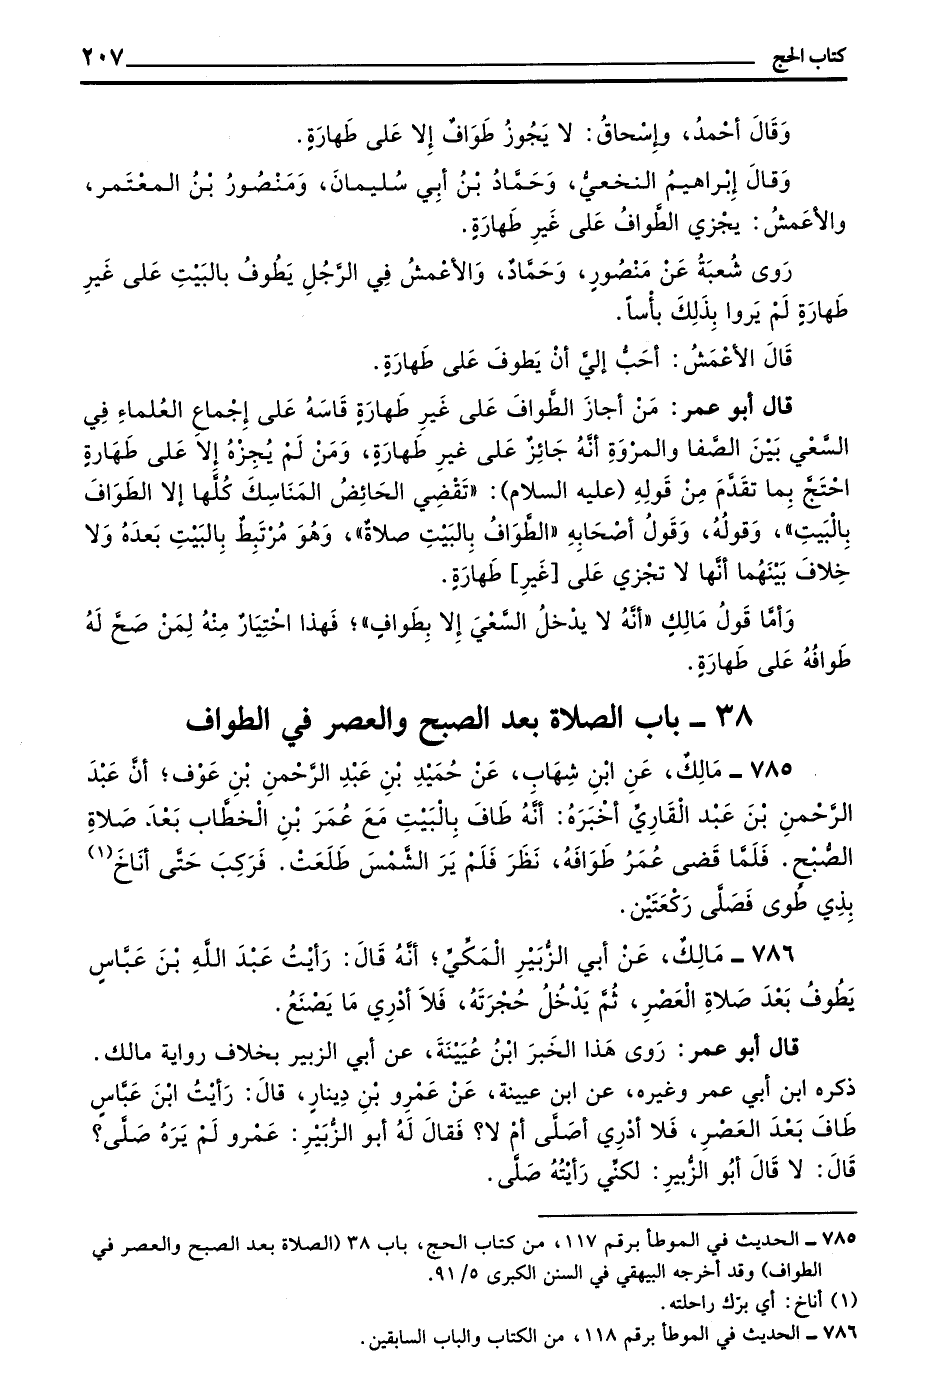 كتاب الحج ٢٠٧
وَقَالَ أحْمدُ، وإسْحاقُ: لا يَجُوزُ طَوَافٌ إلا عَلى طَهَارَةٍ.
وَقالَ إبْراهيمُ النخعيُّ، وَحَمَّادُ بْنُ أبي سُليمانَ، وَمَنْصُورُ بْنُ المعْتمر،
والأعَمشُ: يجْزي الطَّوافُ عَلى غَيرِ طَهارَةٍ.
رَوى شُعبَةُ عَنْ مَنْصُورٍ، وَحَمَّادٌ، وَالأعْمشُ فِي الرَّجُلِ يَطُوفُ بالبَيْتِ عَلى غَيرِ
طَهارَةٍ لَمْ يَروا بِذَلِكَ بأْساً.
قَالَ الأعْمَشُ: أحَبُّ إليَّ أنْ يَطوفَ عَلى طَهارَةٍ.
قال أبو عمر: مَنْ أجازَ الطَّوافَ عَلى غَيرِ طَهارَةٍ قَاسَهُ عَلى إجْماعِ العُلماءِ فِي
السَّعْي بَيْنَ الصَّفا والمروَةِ أنَّهُ جَائِزٌ عَلى غيرِ طَهَارَةٍ، وَمَنْ لَمْ يُجِزْهُ إلاَ عَلى طَهَارةٍ
احْتَجَّ بِما تقَدَّمَ مِنْ قَولِهِ (عليه السلام): «تَقْضِي الحَائِضُ المَنَاسِكَ كُلَّها إلا الطَوَافَ
بِالْبَيتِ»، وَقولُهُ، وَقَولُ أصْحَابِهِ «الطَّوَافُ بِالبَيْتِ صلاةٌ»، وَهُوَ مُرْتَبِطٌ بِالبَيْتِ بَعدَهُ وَلا
خِلافَ بَيْنَهُما أنَّها لا تجْزي عَلى [غَيرِ] طَهَارَةٍ.
وَأمَّا قَولُ مَالِكٍ «أنَّهُ لا يدْخلُ السَّعْيَ إلا بِطَوافٍ»؛ فَهذا اخْتِيَارٌ مِنْهُ لِمَنْ صَحَّ لَهُ
طَوافُهُ عَلى طَهارَةٍ.
٣٨ ـ باب الصلاة بعد الصبح والعصر في الطواف
٧٨٥ ـ مَالِكٌ، عَنِ ابْنِ شِهَابٍ، عَنْ حُمَيْدِ بْنِ عَبْدِ الرَّحْمنِ بْنِ عَوْفٍ؛ أنَّ عَبْدَ
الرَّحْمنِ بْنَ عَبْدِ الْقَارِيِّ أخْبَرَهُ: أنَّهُ طَافَ بِالْبَيْتِ مَعَ عُمَرَ بْنِ الْخطَّابِ بَعْدَ صَلاةِ
الصُّبْحِ. فَلَمَّا قَضى عُمَرُ طَوَافَهُ، نَظَرَ فَلَمْ يَرَ الشَّمْسَ طَلَعَتْ. فَرَكِبَ حَتَّى أنَاخَ(١)
بِذِي طُوى فَصَلَّى رَكْعَتَيْنِ.
٧٨٦ ـ مَالِكٌ، عَنْ أبي الزُّبَيْرِ الْمَكِّيِّ؛ أنَّهُ قَالَ: رَأيْتُ عَبْدَ اللَّهِ بْنَ عَبَّاسٍ
يَطُوفُ بَعْدَ صَلاةِ الْعَصْرِ، ثُمَّ يَدْخُلُ حُجْرَتَهُ، فَلاَ أدْرِي مَا يَصْنَعُ.
قال أبو عمر: رَوى هَذا الخَبرَ ابْنُ عُيَيْنَةَ، عن أبي الزبير بخلاف رواية مالك.
ذكره ابن أبي عمر وغيره، عن ابن عيينة، عَنْ عَمْرِو بْنِ دِينارٍ، قالَ: رَأيْتُ ابْنَ عَبَّاسٍ
طَافَ بَعْدَ العَصْرِ، فَلا أدْرِي أصَلَّى أمْ لا؟ فَقالَ لَهُ أبو الزُّبَيْرِ: عَمْرو لَمْ يَرَهُ صَلَّى؟
قَالَ: لا قَالَ أبُو الزُّبيرِ: لكنِّي رَأيْتُهُ صَلَّى.
٧٨٥ ـ الحديث في الموطأ برقم ١١٧، من كتاب الحج، باب ٣٨ (الصلاة بعد الصبح والعصر في
الطواف) وقد أخرجه البيهقي في السنن الكبرى ٩١/٥.
(١) أناخ: أي برّك راحلته.
٧٨٦ ـ الحديث في الموطأ برقم ١١٨، من الكتاب والباب السابقين.